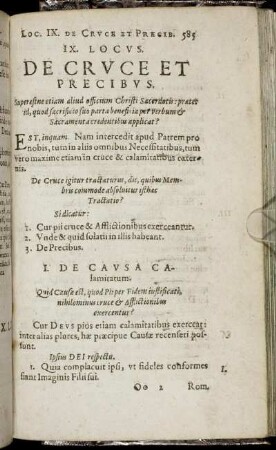 LOC. IX. DE CRVCE ET PRECIB. 583
IX. LOCVS.
DE CRVCE ET
PRECIBVS.
Superestne etiam aliud officium Christi Sacerdotis: præter
id, quod sacrificio suo parta beneficia per verbum &
Sacramenta credentibus applicat?
EST, inquam. Nam intercedit apud Patrem pro
nobis, tum in aliis omnibus Necessitatibus, tum
vero maxime etiam in cruce & calamitatibus exter-
nis.
De Cruce igitur tractaturus, dic, quibus Mem-
bris commode absolvitur isthæc
Tractatio?
Si dicatur:
1. Cur pii cruce & Afflictionibus exerceantur.
2. Vnde & quid solatii in illis habeant.
3. De Precibus.
I. DE CAVSA CA-
lamitatum.
Quid Causæ est, quod Pii per Fidem iustificati,
nihilominus cruce & Afflictionibus
exercentur?
Cur DEVS pios etiam calamitatibus exerceat:
inter alias plures, hæ præcipue Causæ recenseri pos-
sunt.
Ipsius DEI respectu.
1. Quia complacuit ipsi, vt fideles conformes 1.
fiant Imaginis Filii sui.
Oo 2 Rom.